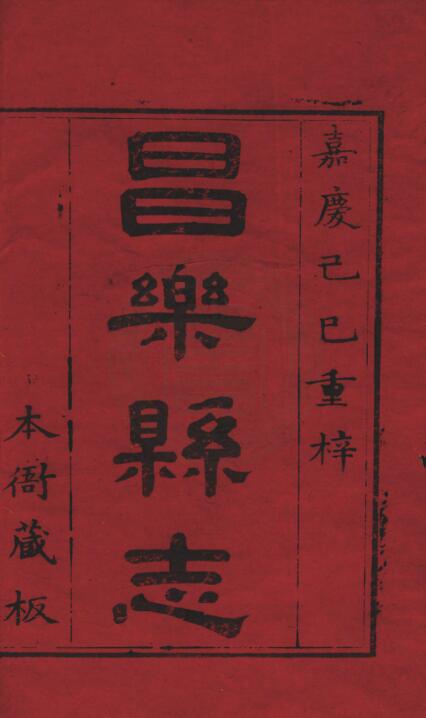 嘉慶己巳重梓
昌樂縣志
本衙藏板